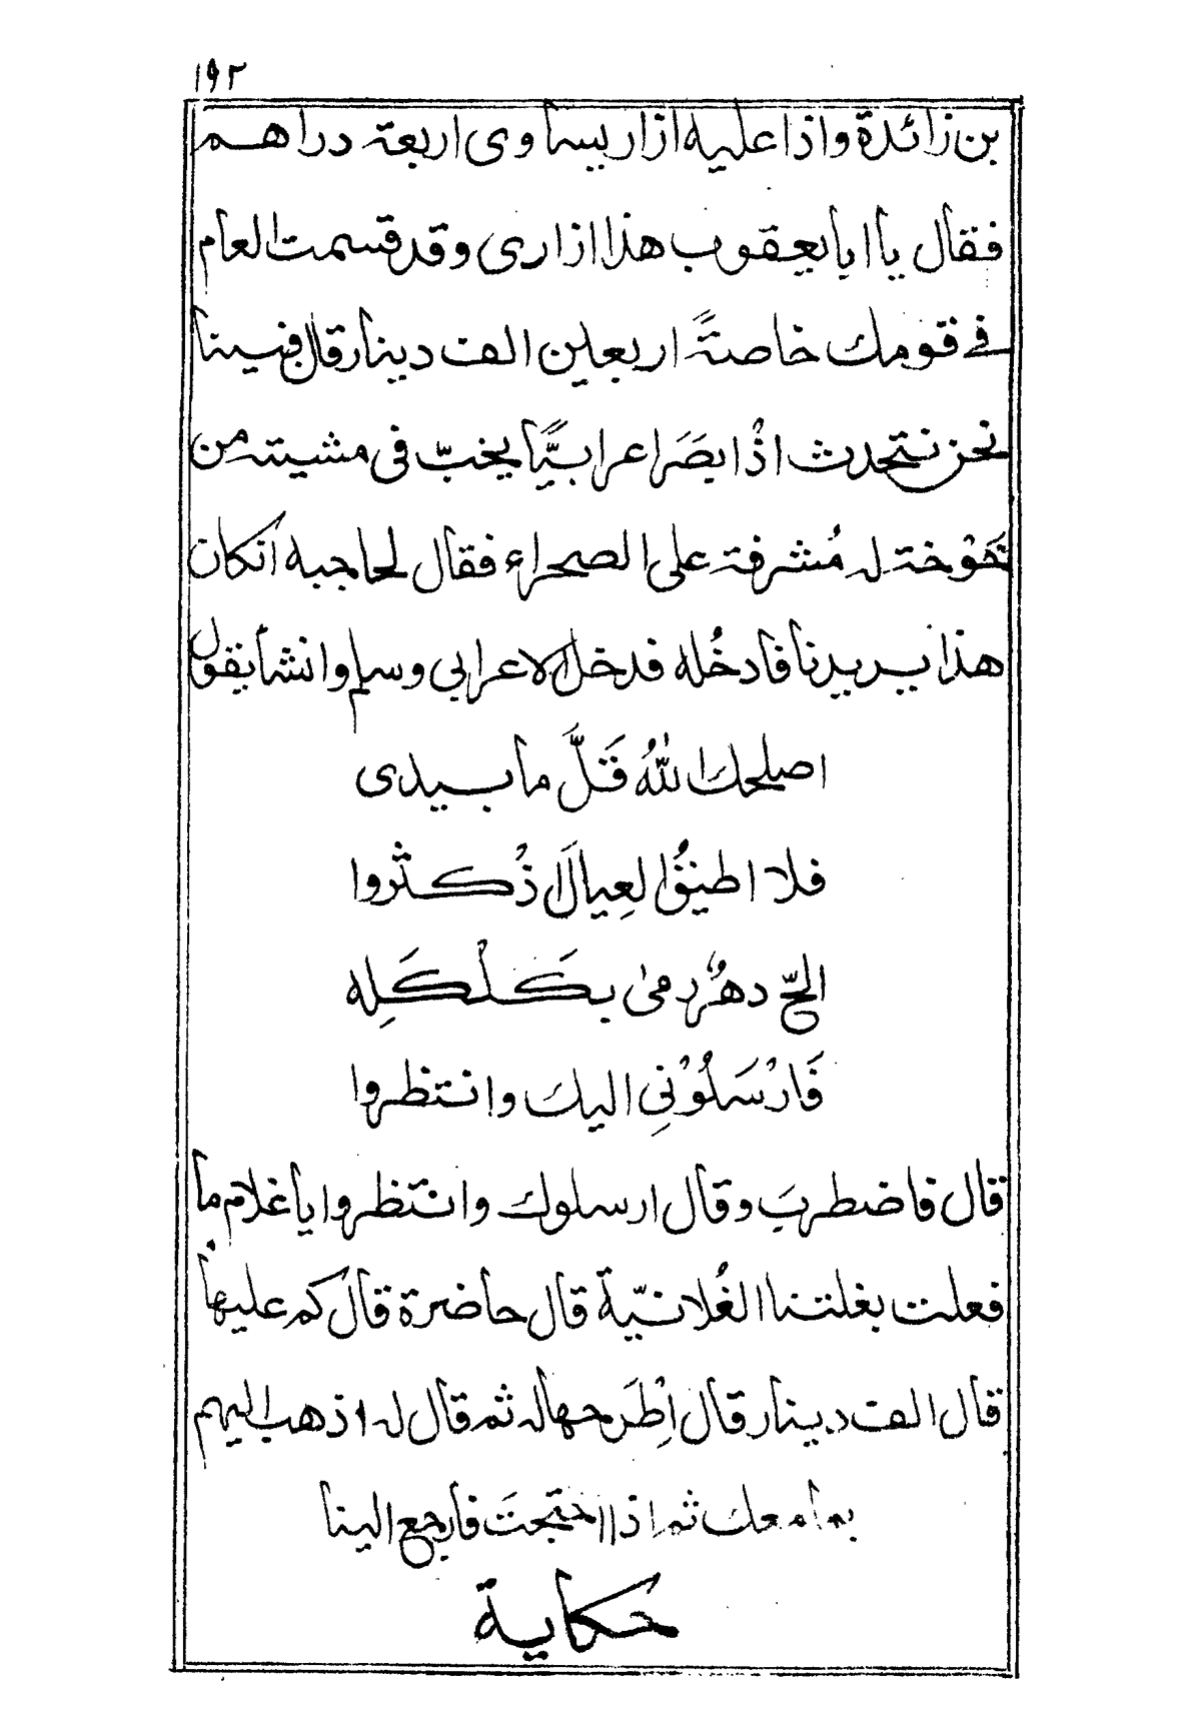 ١٩٢
بن زائدة واذا عليه ازار يساوى اربعة دراهم
فقال يا ابا يعقوب هذا ازارى وقد قسمت العام
فى قومك خاصةً اربعين الف دينار قال فبينا
نحن نتحدث اذْ ابصَرَ اعرابيًّا يخبّ فى مشيته من
خَوْخة له مُشرفة على الصحراء فقال لحاجبه ان كان
هذا يريدنا فادخُله فدخل الاعرابى وسلم وانشأ يقول
اصلحك اللهُ قَلَّ ما بيدى
فلا اطيقُ العِيالَ اذْ كثروا
الحّ دهرٌ رمى بكَلْكَلِه
فَارْسَلُوْنِى اليك وانتظروا
قال فاضطربَ وقال ارسلوك وانتظروا يا غلام ما
فعلت بغلتنا الفُلانيّة قال حاضرة قال كم عليها
قال الف دينار قال اِطْرَحها له ثم قال له اذهب اليهم
بما معك ثم اذا احتجتَ فارجع الينا
حكاية